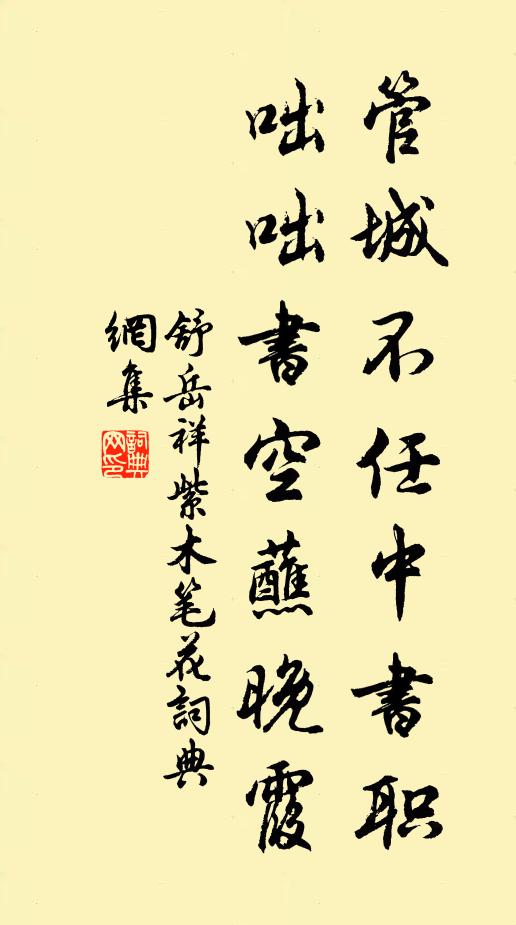 管城不任中書职
咄咄書空蘸晚霞
舒岳祥紫木笔花詞典
網集
詞典网印